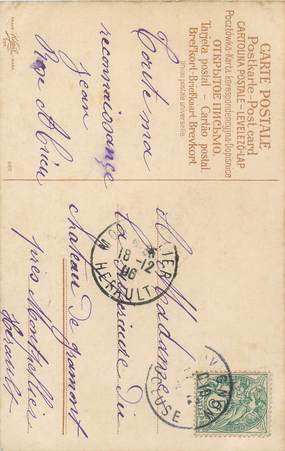 CARTE POSTALE
Postkarte-Post card
CARTOLINA POSTALE-LEVELEZŐ-LAP
Pocztówka-Karta korespondencyjna-Dopisnice
ОТКРЫТОЕ ПИСЬМО.
Tarjeta postal-Cartão postal.
Brefkort-Briefkaart Brevkort
Union postale universelle
Toute ma
reconnaissance
Madame
la Supérieure du
chateau de gramont
près Montpellier
Hérault
18-12
06
HERAULT
VAUCLUSE
5